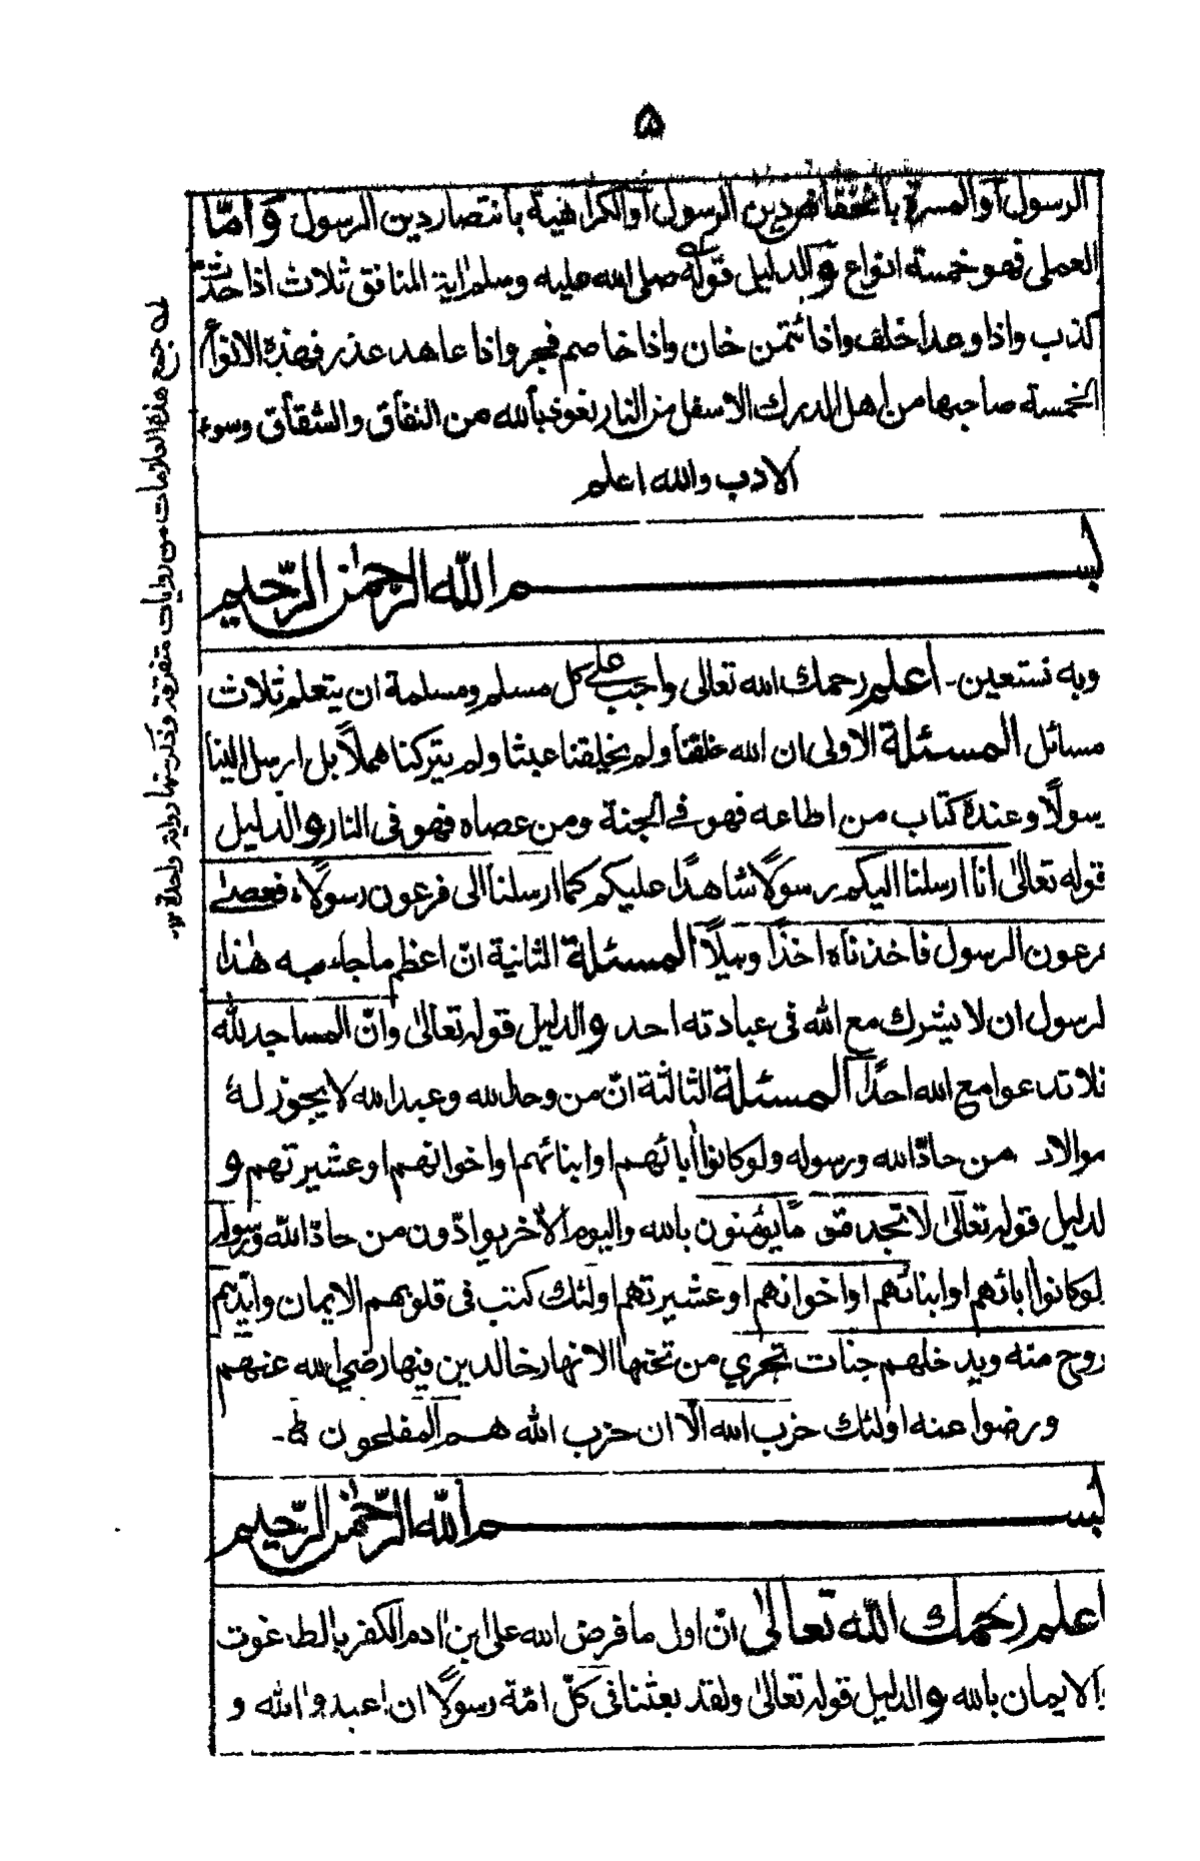 ۵
الرسول أو المسرة بانخفاض دين الرسول أو الكراهية بانتصار دين الرسول وأمّا
العملي فهو خمسة انواع والدليل قوله صلى الله عليه وسلم اية المنافق ثلاث اذا حدث
كذب واذا وعد اخلف واذا ئتمن خان واذا خاصم فجر واذا عاهد غدر فهذه الانواع
الخمسة صاحبها من اهل الدرك الاسفل من النار نعوذ بالله من النفاق والشقاق وسوء
الادب والله اعلم
بسم الله الرّحمٰن الرّحيم
وبه نستعين - اعلم رحمك الله تعالى واجب على كل مسلم ومسلمة ان يتعلم ثلاث
مسائل المسئلة الاولى ان الله خلقنا ولم يخلقنا عبثا ولم يتركنا هملاً بل ارسل الينا
رسولًا وعنده كتاب من اطاعه فهو في الجنة ومن عصاه فهو في النار والدليل
قوله تعالىٰ انا ارسلنا اليكم رسولًا شاهدًا عليكم كما ارسلنا الى فرعون رسولًا ه فعصىٰ
فرعون الرسول فاخذناه اخذًا وبيلًا المسئلة الثانية انّ اعظم ماجاء به هٰذا
لرسول ان لا يشرك مع الله في عبادته احد والدليل قوله تعالىٰ وانّ المساجد لله
فلا تدعوا مع الله احدًا المسئلة الثالثة انّ من وحد لله وعبد الله لا يجوز لهٗ
موالاد من حادّ الله ورسوله ولو كانوا اٰبائهم او ابنائهم او اخوانهم او عشيرتهم و
لدليل قوله تعالىٰ لا تجد قومًا يؤمنون بالله واليوم الآخر يوادّون من حادّ الله ورسوله
لو كانوا اٰبائهم او ابنائهم او اخوانهم او عشيرتهم اولئك كتب في قلوبهم الايمان وايّدهم
روح منه ويدخلهم جنات تجري من تحتها الانهار خالدين فيها رضي الله عنهم
ورضوا عنه اولئك حزب الله الّا ان حزب الله هم المفلحون ط -
بسم الله الرّحمٰن الرّحيم
اعلم رحمك الله تعالىٰ انّ اول ما فرض الله على ابن اٰدم الكفر بالطاغوت
والايمان بالله والدليل قوله تعالىٰ ولقد بعثنا في كلّ امّة رسولًا ان اعبدوا الله و
له جمع هذه العلامات من روايات متفرقة وذكرتها رواية واحدة ١٢